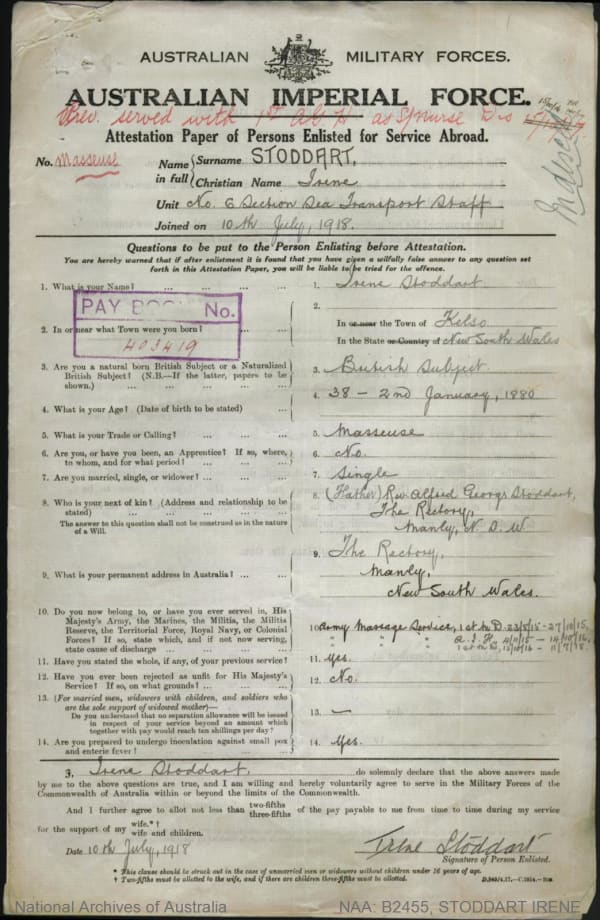 AUSTRALIAN MILITARY FORCES.
AUSTRALIAN IMPERIAL FORCE.
Prev. served with 1st A.G.H. as S/Nurse Dis
Attestation Paper of Persons Enlisted for Service Abroad.
Indexed
No. Masseuse
Name in full { Surname STODDART,
Christian Name Irene
Unit No. 6 Section Sea Transport Staff
Joined on 10th July, 1918.
Questions to be put to the Person Enlisting before Attestation.
You are hereby warned that if after enlistment it is found that you have given a wilfully false answer to any question set
forth in this Attestation Paper, you will be liable to be tried for the offence.
1. What is your Name? ... 1. Irene Stoddart
PAY BOOK No.
403419
2. In or near what Town were you born? ... 2. In or near the Town of Kelso
In the State or Country of New South Wales
3. Are you a natural born British Subject or a Naturalized
British Subject? (N.B.—If the latter, papers to be
shown.) ... 3. British Subject.
4. What is your Age? (Date of birth to be stated) ... 4. 38 – 2nd January, 1880
5. What is your Trade or Calling? ... 5. Masseuse
6. Are you, or have you been, an Apprentice? If so, where,
to whom, and for what period? ... 6. No.
7. Are you married, single, or widower? ... 7. Single
8. Who is your next of kin? (Address and relationship to be
stated) ... 8. (Father) Rev. Alfred George Stoddart,
The Rectory,
Manly, N.S.W
The answer to this question shall not be construed as in the nature
of a Will.
9. What is your permanent address in Australia? ... 9. The Rectory,
Manly,
New South Wales.
10. Do you now belong to, or have you ever served in, His
Majesty's Army, the Marines, the Militia, the Militia
Reserve, the Territorial Force, Royal Navy, or Colonial
Forces? If so, state which, and if not now serving,
state cause of discharge ... 10. Army Massage Service, 1st M.D. 23/5/15 - 27/10/15,
" " " A.I.F. 4/11/15 – 14/10/16,
" " " 1st M.D. 15/10/16 – 11/7/18.
11. Have you stated the whole, if any, of your previous service? 11. Yes.
12. Have you ever been rejected as unfit for His Majesty's
Service? If so, on what grounds? ... 12. No.
13. (For married men, widowers with children, and soldiers who
are the sole support of widowed mother)—
Do you understand that no separation allowance will be issued
in respect of your service beyond an amount which
together with pay would reach ten shillings per day? 13. —
14. Are you prepared to undergo inoculation against small pox
and enteric fever? ... 14. Yes.
I, Irene Stoddart, do solemnly declare that the above answers made
by me to the above questions are true, and I am willing and hereby voluntarily agree to serve in the Military Forces of the
Commonwealth of Australia within or beyond the limits of the Commonwealth.
And I further agree to allot not less than two-fifths three-fifths of the pay payable to me from time to time during my service
for the support of my wife.*† wife and children.
Date 10th July, 1918
Irene Stoddart
Signature of Person Enlisted.
* This clause should be struck out in the case of unmarried men or widowers without children under 16 years of age.
† Two-fifths must be allotted to the wife, and if there are children three-fifths must be allotted.
National Archives of Australia
NAA: B2455, STODDART IRENE